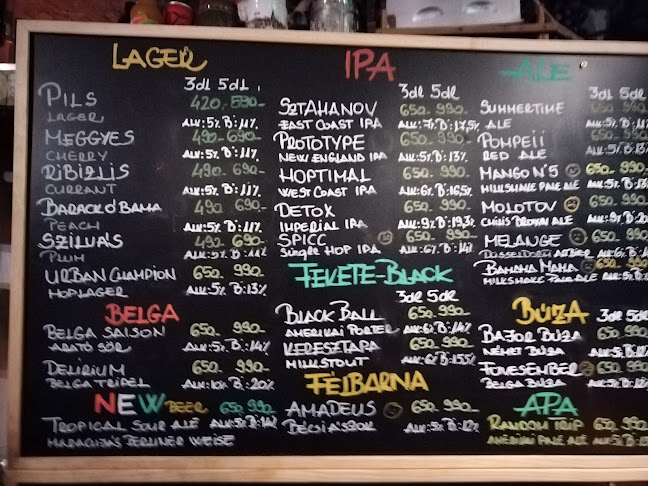 LAGER
3dl 5dl
PILS 420,- 590,-
LAGER ALK:5% B°:11%
MEGGYES 490,- 690,-
CHERRY ALK:5% B°:11%
RIBIZLIS 490,- 690,-
CURRANT ALK:5% B°:11%
BARACK O'BAMA 490,- 690,-
PEACH ALK:5% B°:11%
SZILVÁS 490,- 690,-
PLUM ALK:5% B°:11%
URBAN CHAMPION 650,- 990,-
HOPLAGER ALK:5% B°:13%
BELGA
BELGA SAISON 650,- 990,-
ARATÓ SÖR ALK:5% B°:14%
DELIRIUM 650,- 990,-
BELGA TRIPEL ALK:10% B°:20%
NEW BEER 650,- 990,-
TROPICAL SOUR ALE ALK:5%
MARACUJÁS BERLINER WEISE
IPA
3dl 5dl
SZTAHANOV 650,- 990,-
EAST COAST IPA ALK:7% B°:17,5%
PROTOTYPE 650,- 990,-
NEW ENGLAND IPA ALK:5% B°:13%
HOPTIMAL 650,- 990,-
WEST COAST IPA ALK:6% B°:16,5%
DETOX 650,- 990,-
IMPERIAL IPA ALK:9% B°:19,3%
SPICC 650,- 990,-
SINGLE HOP IPA ALK:6% B°:14%
FEKETE-BLACK
3dl 5dl
BLACK BALL 650,- 990,-
AMERIKAI PORTER ALK:6% B°:14%
KERESZTAPA 650,- 990,-
MILKSTOUT ALK:6% B°:15,5%
FÉLBARNA
AMADEUS 650,- 990,-
BÉCSI ÁSZOK ALK:5% B°:12%
ALE
3dl 5dl
SUMMERTIME 650,- 990,-
ALE ALK:5% B°:11%
POMPEII 650,- 990,-
RED ALE ALK:5% B°:13%
MANGO N°5 650,- 990,-
MILKSHAKE PALE ALE ALK:5% B°:
MOLOTOV 650,- 990,-
CHILIS BROWN ALE ALK:9% B°:20%
MELANGE 650,- 990,-
DÜSSELDORFI ALTBIER ALK:6%
BANANA MAMA 650,- 990,-
MILKSHAKE PALE ALE ALK:5%
BÚZA
3dl 5dl
BAJOR BÚZA 650,- 990,-
NÉMET BÚZA ALK:5%
FÜVESEMBER 650,- 990,-
BELGA BÚZA ALK:5%
APA
RANDOM TRIP 650,- 990,-
AMERIKAI PALE ALE ALK:5%